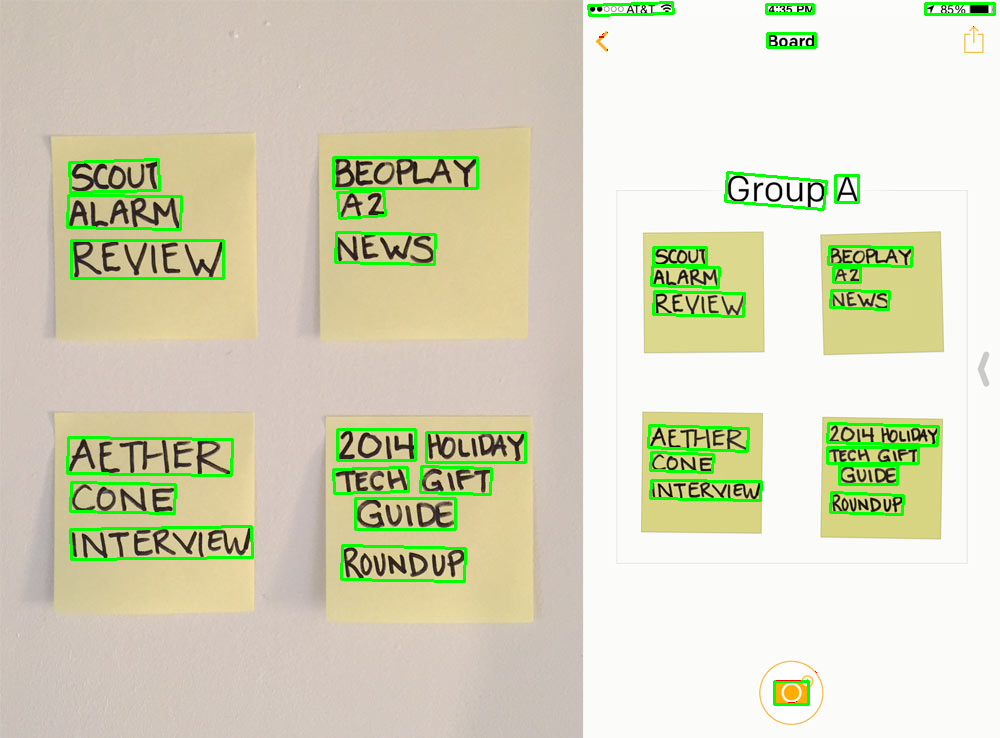 SCOUT
ALARM
REVIEW
BEOPLAY
A2
NEWS
AETHER
CONE
INTERVIEW
2014 HOLIDAY
TECH GIFT
GUIDE
ROUNDUP
AT&T 4:35 PM 85%
Board
Group A
SCOUT
ALARM
REVIEW
BEOPLAY
A2
NEWS
AETHER
CONE
INTERVIEW
2014 HOLIDAY
TECH GIFT
GUIDE
ROUNDUP